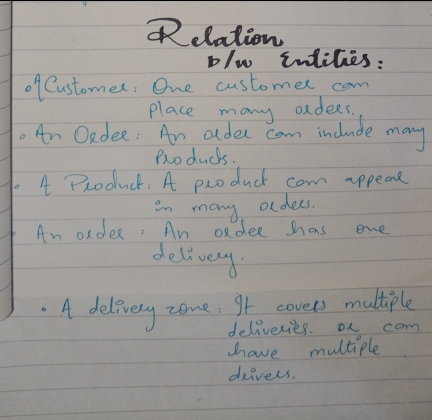 Relation
b/w Entities:
• A Customer: One customer can
place many orders.
• An Order: An order can include many
Products.
• A Product: A product can appear
in many orders.
• An order: An order has one
delivery.
• A delivery zone: It covers multiple
deliveries. or can
have multiple
drivers.